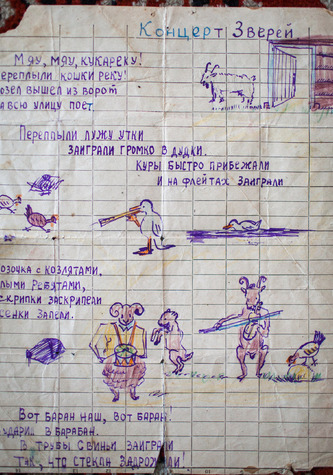 Концерт Зверей
Мяу, мяу, кукареку!
переплыли кошки реку!
озел вышел из ворот
на всю улицу поет.
Переплыли лужу утки
заиграли громко в дудки.
Куры быстро прибежали
и на флейтах заиграли
озочка с козлятами.
лыми ребятами,
скрипки заскрипели
сенки запели.
Вот баран наш, вот баран!
ударил в барабан.
В трубы свиньи заиграли
Так, что стекла задрожали!